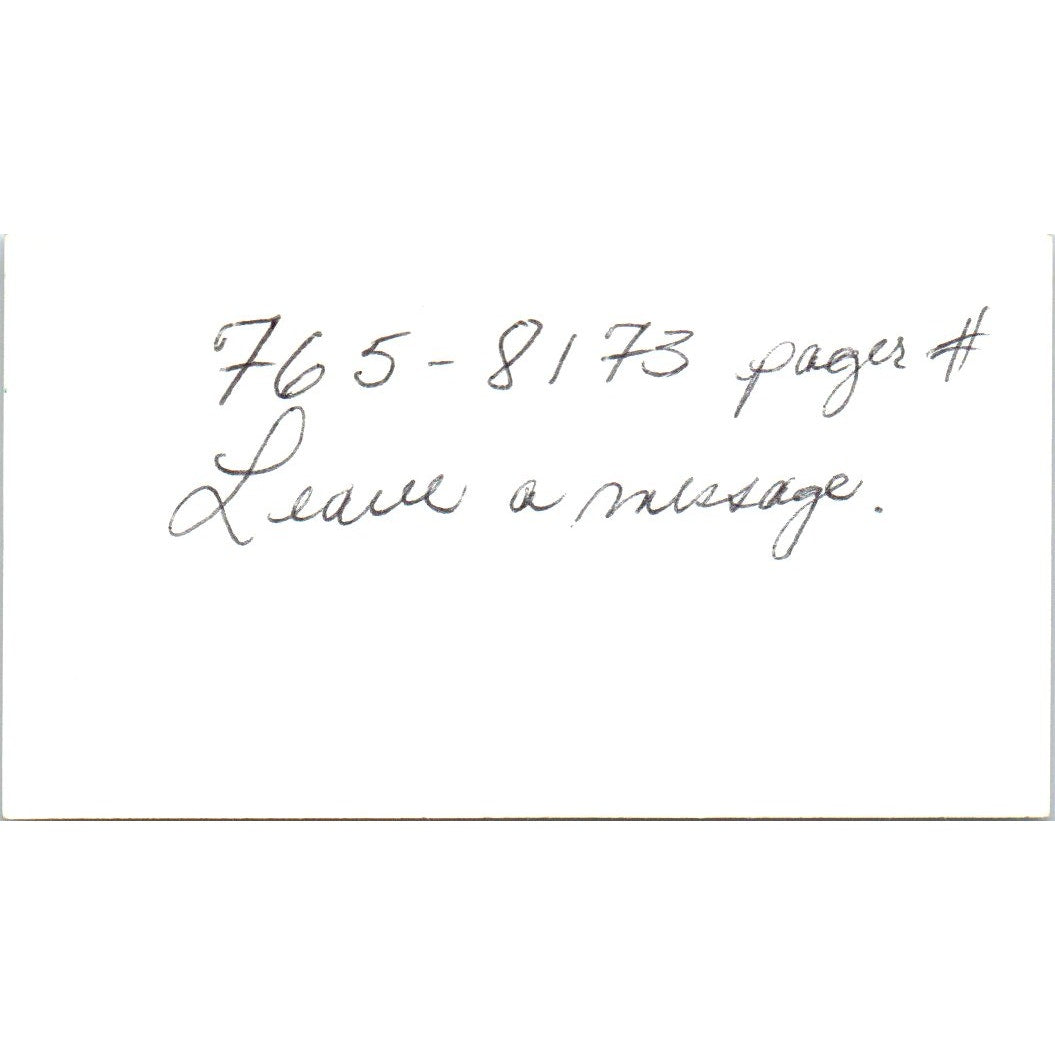 765-8173 pager #
Leave a message.